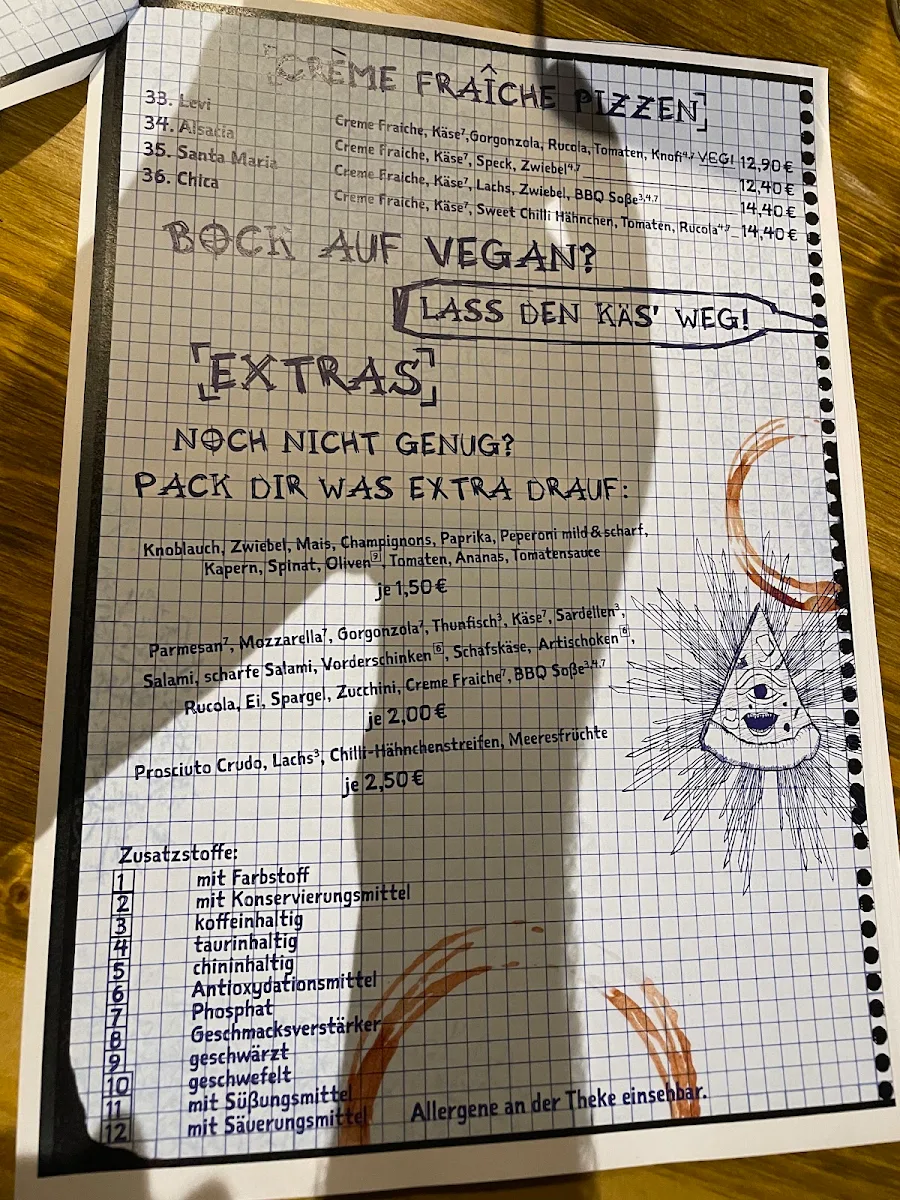 [CRÈME FRAÎCHE PIZZEN]
33. Levi Creme Fraiche, Käse⁷,Gorgonzola, Rucola, Tomaten, Knofi⁴·⁷ VEGI 12,90€
34. Alsacia Creme Fraiche, Käse⁷, Speck, Zwiebel⁴·⁷ 12,40€
35. Santa Maria Creme Fraiche, Käse⁷, Lachs, Zwiebel, BBQ Soße³·⁴·⁷ 14,40€
36. Chica Creme Fraiche, Käse⁷, Sweet Chilli Hähnchen, Tomaten, Rucola⁴·⁷ 14,40€
BOCK AUF VEGAN?
LASS DEN KÄS' WEG!
[EXTRAS]
NOCH NICHT GENUG?
PACK DIR WAS EXTRA DRAUF:
Knoblauch, Zwiebel, Mais, Champignons, Paprika, Peperoni mild & scharf,
Kapern, Spinat, Oliven[9], Tomaten, Ananas, Tomatensauce
je 1,50€
Parmesan⁷, Mozzarella⁷, Gorgonzola⁷, Thunfisch³, Käse⁷, Sardellen³,
Salami, scharfe Salami, Vorderschinken[6], Schafskäse, Artischoken[6],
Rucola, Ei, Spargel, Zucchini, Creme Fraiche⁷, BBQ Soße³·⁴·⁷
je 2,00€
Prosciuto Crudo, Lachs³, Chilli-Hähnchenstreifen, Meeresfrüchte
je 2,50€
Zusatzstoffe:
1 mit Farbstoff
2 mit Konservierungsmittel
3 koffeinhaltig
4 taurinhaltig
5 chininhaltig
6 Antioxydationsmittel
7 Phosphat
8 Geschmacksverstärker
9 geschwärzt
10 geschwefelt
11 mit Süßungsmittel
12 mit Säuerungsmittel
Allergene an der Theke einsehbar.